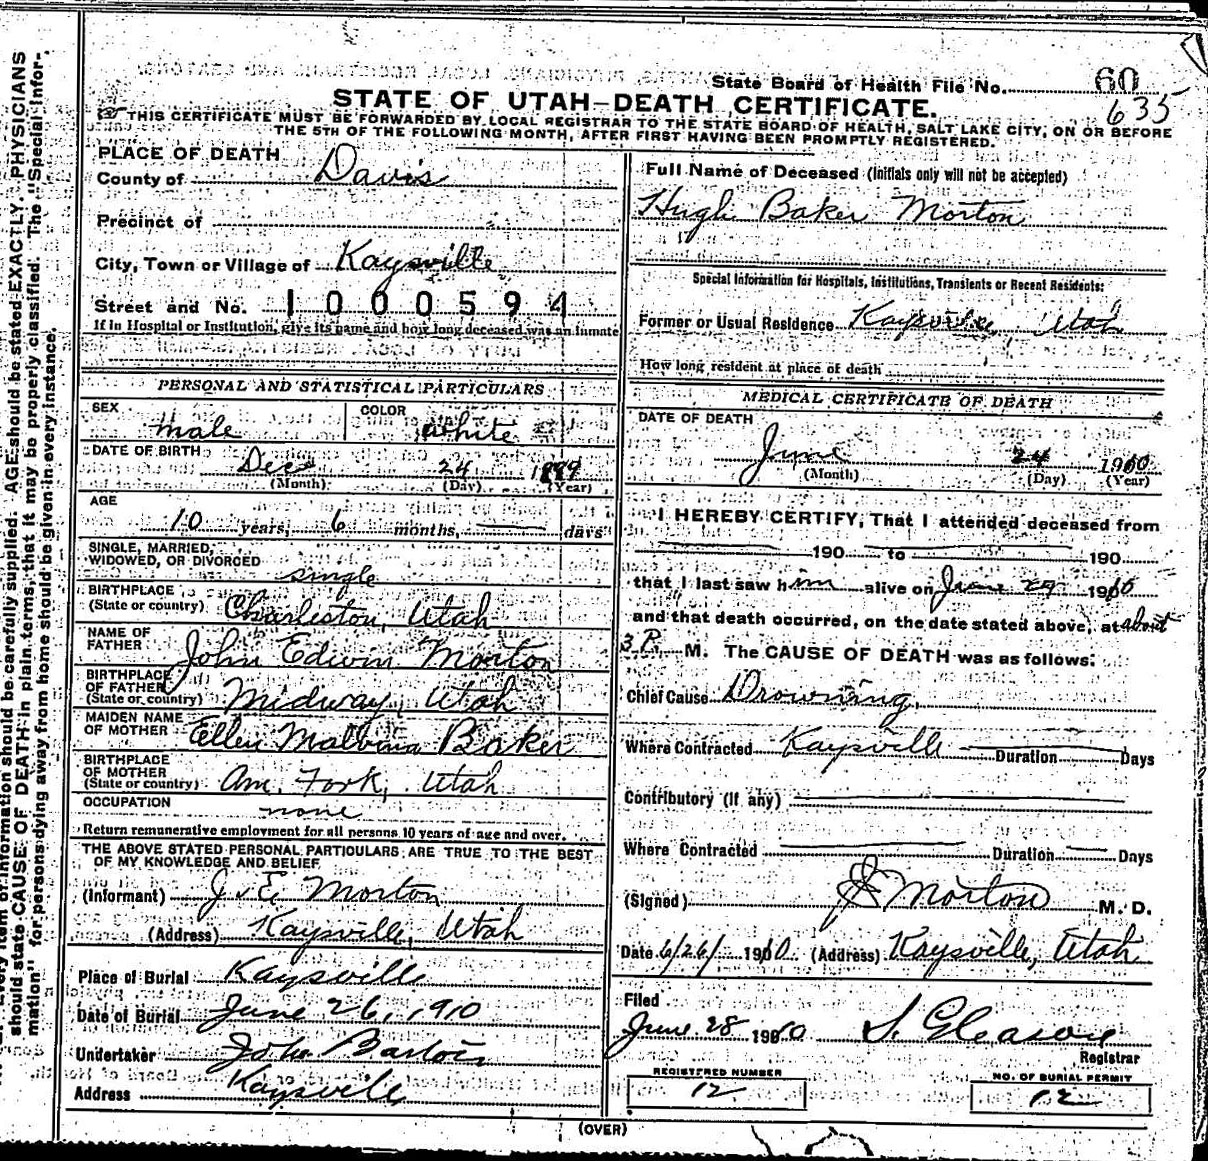 State Board of Health File No. 60
635
STATE OF UTAH—DEATH CERTIFICATE.
THIS CERTIFICATE MUST BE FORWARDED BY LOCAL REGISTRAR TO THE STATE BOARD OF HEALTH, SALT LAKE CITY, ON OR BEFORE
THE 5TH OF THE FOLLOWING MONTH, AFTER FIRST HAVING BEEN PROMPTLY REGISTERED.
PLACE OF DEATH
County of Davis
Precinct of
City, Town or Village of Kaysville
Street and No. 1000594
If in Hospital or Institution, give its name and how long deceased was an inmate
PERSONAL AND STATISTICAL PARTICULARS
SEX male COLOR white
DATE OF BIRTH Dec 24 1899
(Month) (Day) (Year)
AGE
10 years, 6 months, days
SINGLE, MARRIED,
WIDOWED, OR DIVORCED single
BIRTHPLACE
(State or country) Charleston, Utah
NAME OF
FATHER John Edwin Morton
BIRTHPLACE
OF FATHER
(State or country) Midway, Utah
MAIDEN NAME
OF MOTHER Ellen Malvina Baker
BIRTHPLACE
OF MOTHER
(State or country) Am. Fork, Utah
OCCUPATION none
Return remunerative employment for all persons 10 years of age and over.
THE ABOVE STATED PERSONAL PARTICULARS ARE TRUE TO THE BEST
OF MY KNOWLEDGE AND BELIEF
(Informant) J. E. Morton
(Address) Kaysville, Utah
Place of Burial Kaysville
Date of Burial June 26, 1910
Undertaker John Barton
Address Kaysville
Full Name of Deceased (Initials only will not be accepted)
Hugh Baker Morton
Special Information for Hospitals, Institutions, Transients or Recent Residents:
Former or Usual Residence Kaysville, Utah
How long resident at place of death
MEDICAL CERTIFICATE OF DEATH
DATE OF DEATH
June 24 1910
(Month) (Day) (Year)
I HEREBY CERTIFY, That I attended deceased from
190 to 190
that I last saw him alive on June 1910
and that death occurred, on the date stated above, at about
3 P. M. The CAUSE OF DEATH was as follows:
Chief Cause Drowning,
Where Contracted Kaysville Duration Days
Contributory (If any)
Where Contracted Duration Days
(Signed) Morton M. D.
Date 6/26/ 1910 (Address) Kaysville, Utah
Filed
June 28 1910 S. Gleason
Registrar
REGISTERED NUMBER
12
NO. OF BURIAL PERMIT
12
(OVER)
Every item of information should be carefully supplied. AGE should be stated EXACTLY. PHYSICIANS
should state CAUSE OF DEATH in plain terms, that it may be properly classified. The "Special Infor-
mation" for persons dying away from home should be given in every instance.